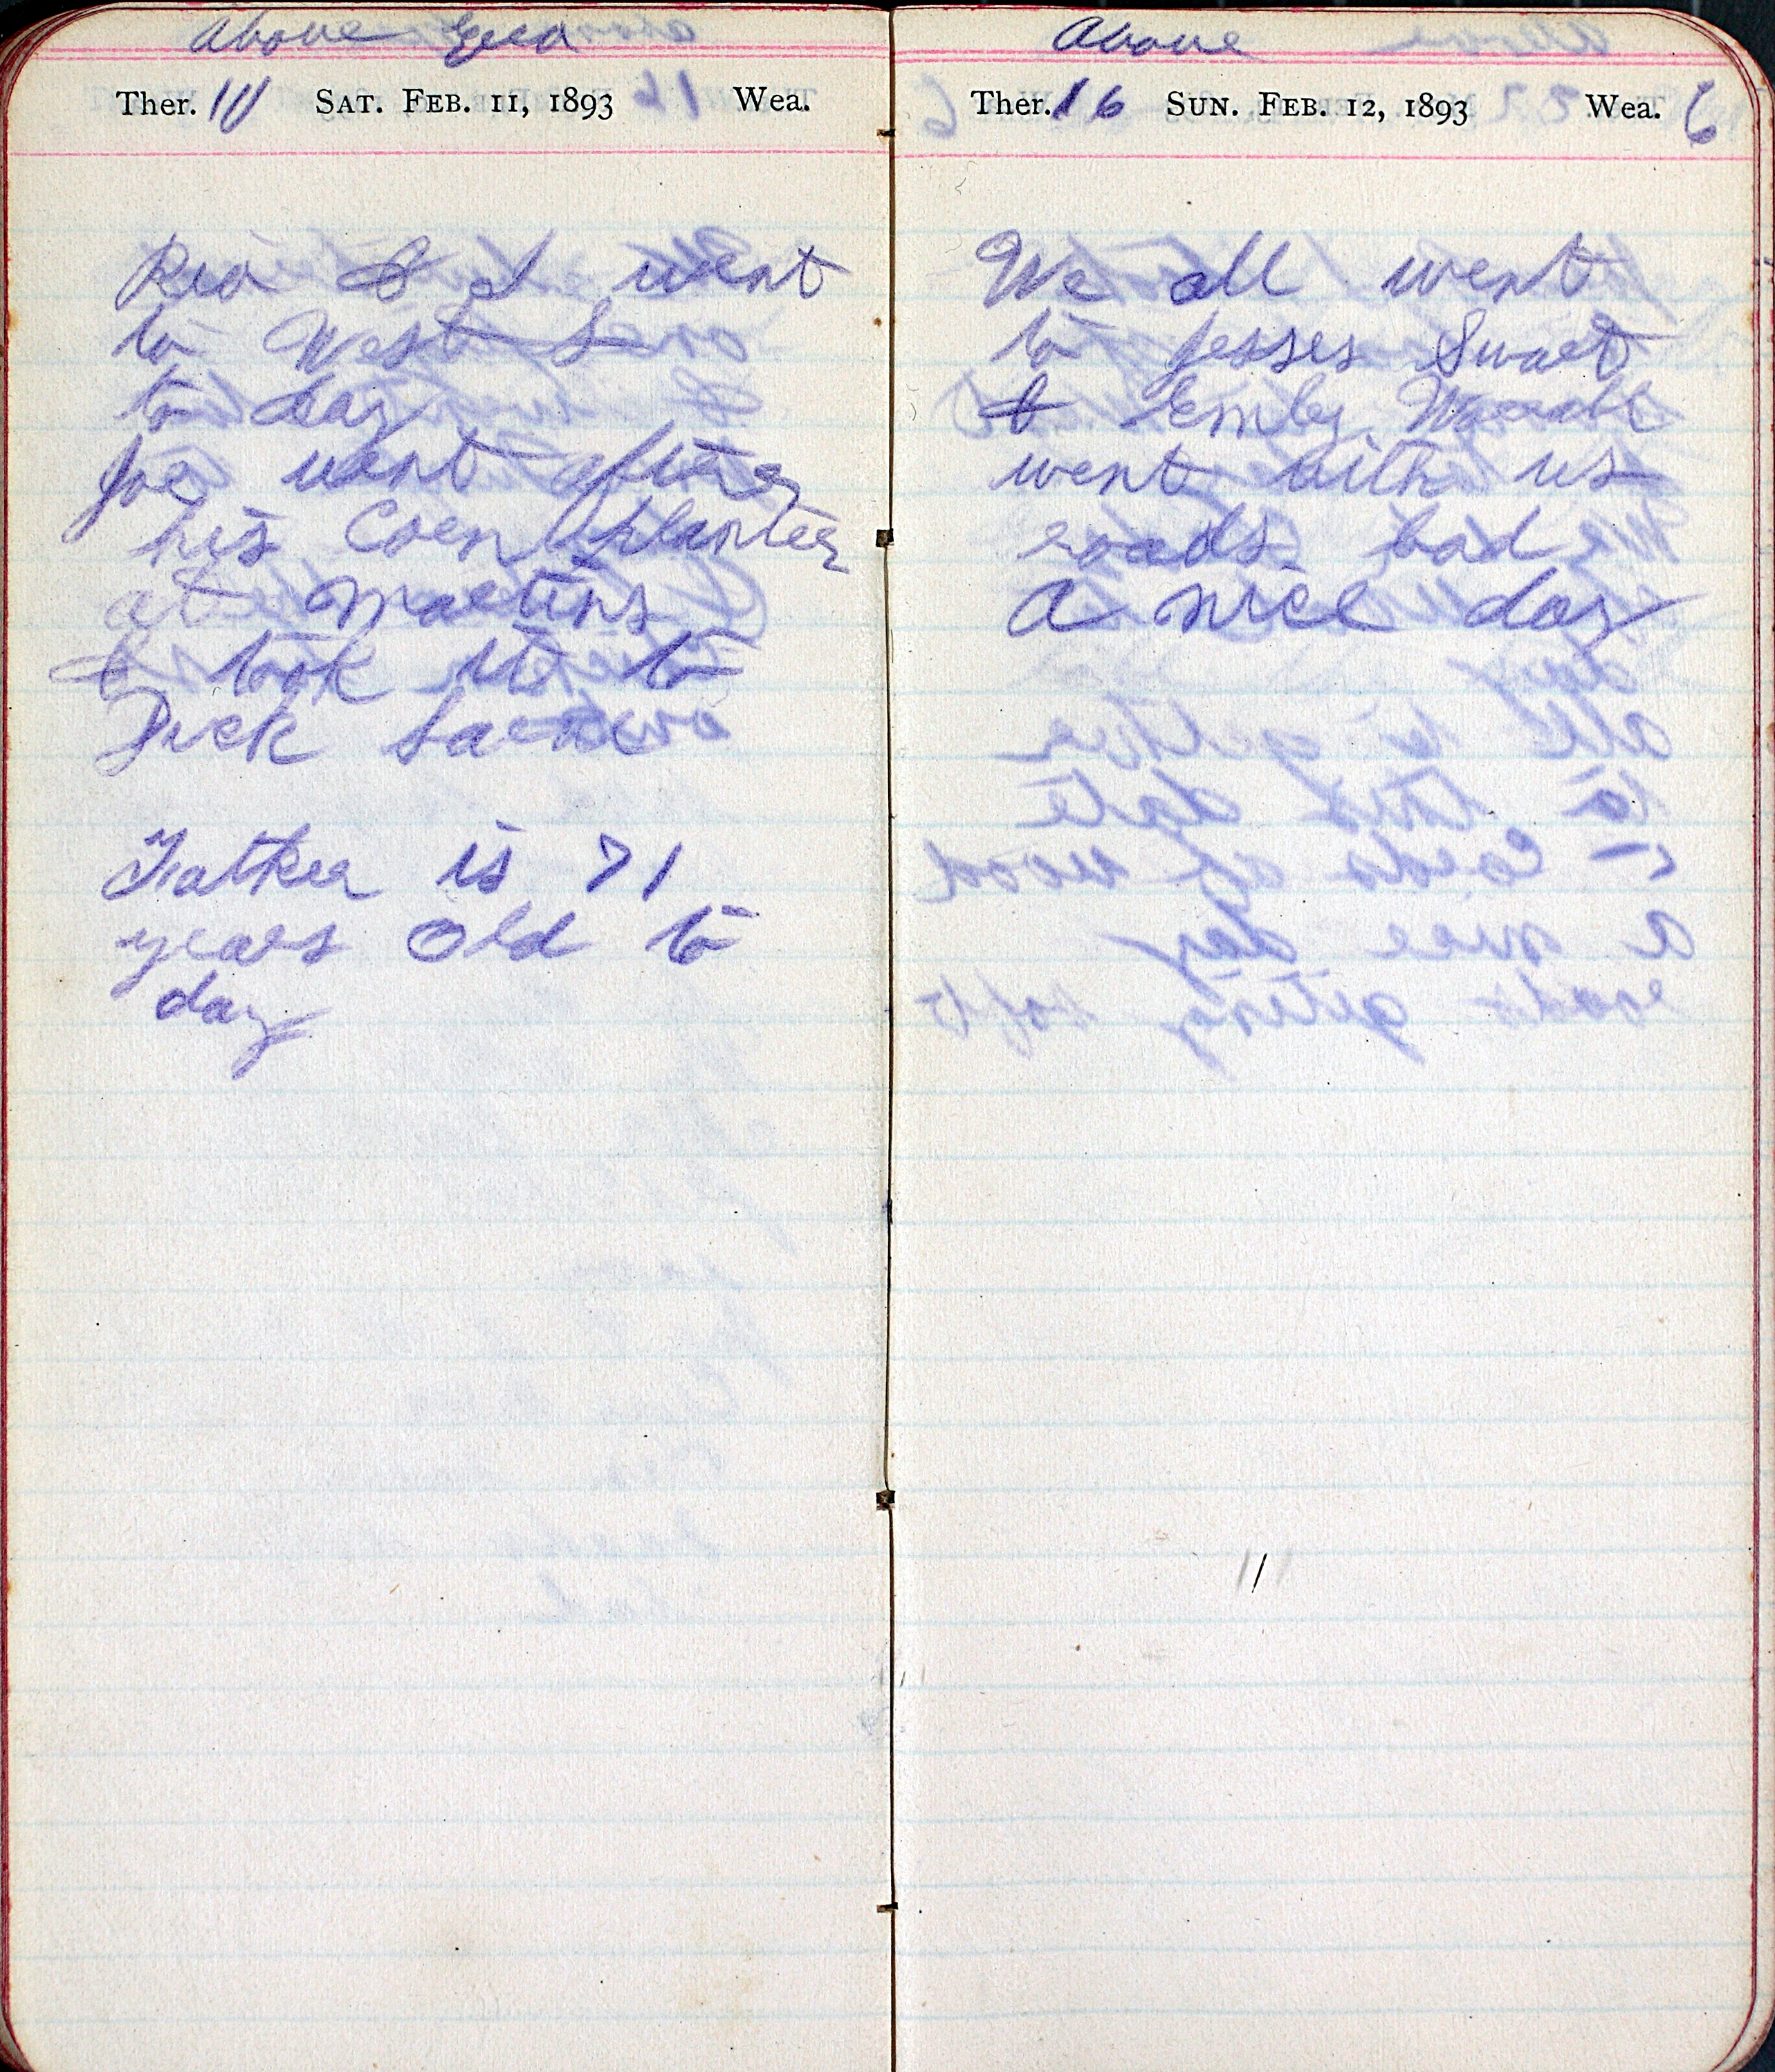 Above Zero
Ther. 10 SAT. FEB. 11, 1893 Wea.
Rea & I went
to West L
to day
Joe went after
his Corn planter
at Martins
& took it to
Dick
Father is 71
years Old to
day
Above
Ther. 16 SUN. FEB. 12, 1893 Wea. 6
We all went
to Jesses Swart
& Emily
went with us
roads bad
A nice day